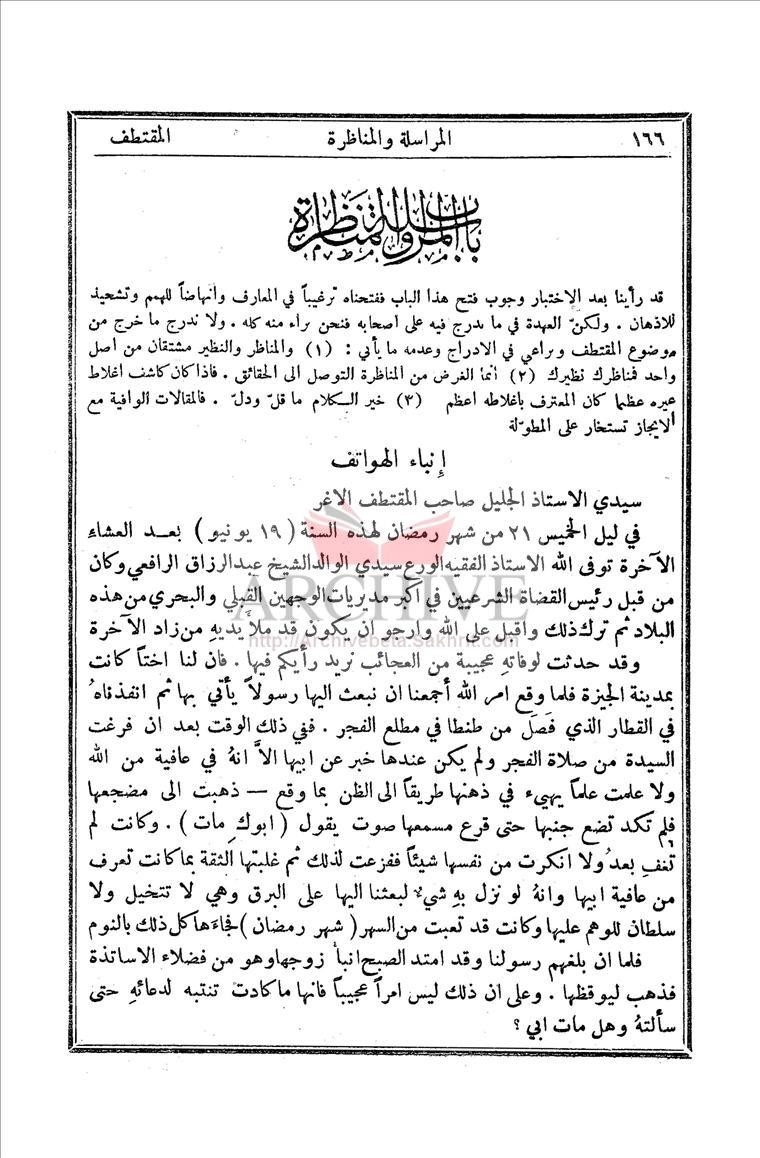 ١٦٦ المراسلة والمناظرة المقتطف
باب المراسلة والمناظرة
قد رأينا بعد الاختبار وجوب فتح هذا الباب ففتحناه ترغيباً في المعارف وانهاضاً للهمم وتشحيذ
للاذهان . ولكنّ العهدة في ما يدرج فيه على اصحابه فنحن براء منه كله . ولا ندرج ما خرج عن
موضوع المقتطف ونراعي في الادراج وعدمه ما يأتي : (١) والمناظر والنظير مشتقان من اصل
واحد فمناظرك نظيرك (٢) انما الغرض من المناظرة التوصل الى الحقائق . فاذا كان كاشف اغلاط
غيره عظيما كان المعترف باغلاطه اعظم (٣) خير الكلام ما قلّ ودلّ . فالمقالات الوافية مع
الايجاز تستخار على المطوّلة
إنباء الهواتف
سيدي الاستاذ الجليل صاحب المقتطف الاغر
في ليل الخميس ٢١ من شهر رمضان لهذه السنة (١٩ يونيو) بعد العشاء
الآخرة توفى الله الاستاذ الفقيه الورع سيدي الوالد الشيخ عبد الرزاق الرافعي وكان
من قبل رئيس القضاة الشرعيين في اكبر مديريات الوجهين القبلي والبحري من هذه
البلاد ثم ترك ذلك واقبل على الله وارجو ان يكون قد ملأ يديهِ من زاد الآخرة
وقد حدثت لوفاتهِ عجيبة من العجائب نريد رأيكم فيها . فان لنا اختاً كانت
بمدينة الجيزة فلما وقع امر الله أجمعنا ان نبعث اليها رسولاً يأتي بها ثم انفذناهُ
في القطار الذي فَصَلَ من طنطا في مطلع الفجر . ففي ذلك الوقت بعد ان فرغت
السيدة من صلاة الفجر ولم يكن عندها خبر عن ابيها الاَّ انهُ في عافية من الله
ولا علمت علماً يهيىء في ذهنها طريقاً الى الظن بما وقع — ذهبت الى مضجعها
فلم تكد تضع جنبها حتى قرع مسمعها صوت يقول (ابوكِ مات) . وكانت لم
تغفِ بعدُ ولا انكرت من نفسها شيئاً ففزعت لذلك ثم غلبتها الثقة بما كانت تعرف
من عافية ابيها وانهُ لو نزل بهِ شيء لبعثنا اليها على البرق وهي لا تتخيل ولا
سلطان للوهم عليها وكانت قد تعبت من السهر (شهر رمضان) فجاءَها كل ذلك بالنوم
فلما ان بلغهم رسولنا وقد امتد الصبح انبأ زوجها وهو من فضلاء الاساتذة
فذهب ليوقظها . وعلى ان ذلك ليس امراً عجيباً فانها ما كادت تنتبه لدعائهِ حتى
سألتهُ وهل مات ابي ؟
ARCHIVE
http://Archivebeta.Sakhrit.com